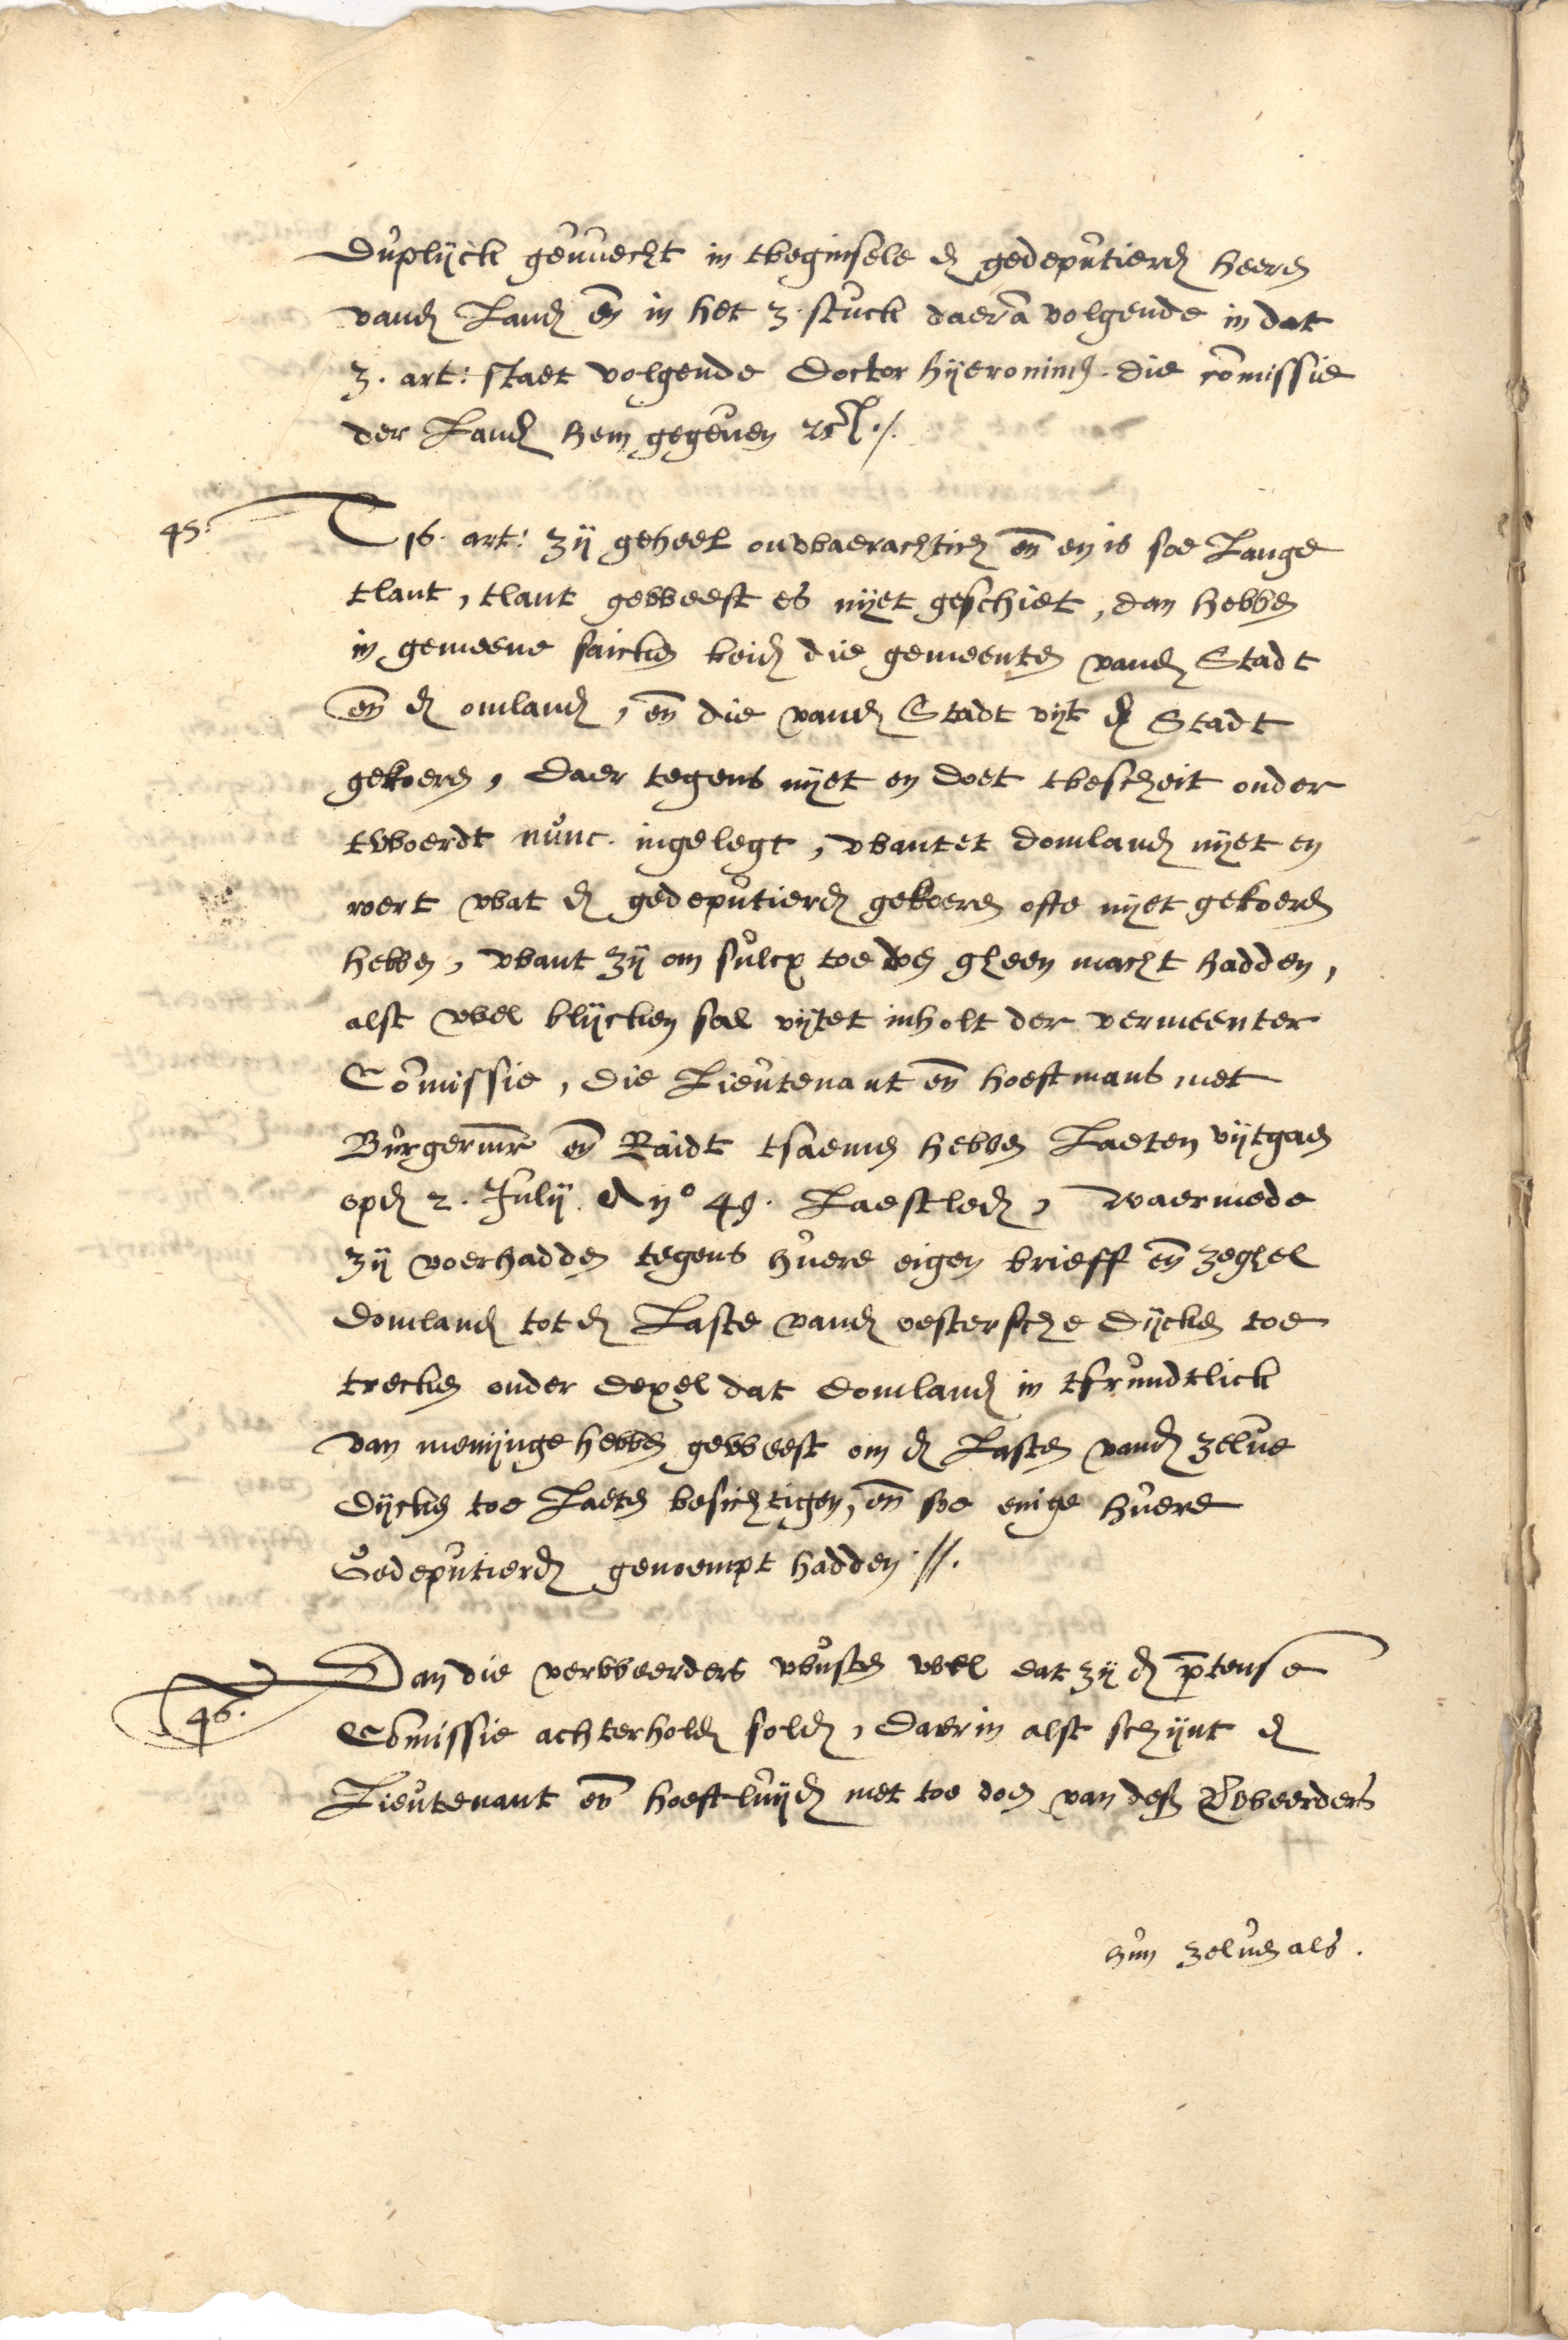 Duplijck geuuecht in tbeginsele d gedeputierd heere
vand Land en in het 3. stuck daera volgende in dat
3. art: staet volgende Doctor hyeronim die comissie
der Land hem gegeuen etc ./.
45. T 16. art: zij geheel onwaerachtich en en is soe Lange
tlant, tlant geweest es nyet geschiet, dan hebbe
in gemeene saicke beid die gemeente vand Stadt
en d omland, en die vand Stadt vyt d Stadt
gekoere, daer tegens nyet en doet tbescheit onder
twoerdt nunc. ingelegt, want et domland nyet en
roert wat d gedeputierd gekoere ofte nyet gekoere
hebbe, want zij om sulcx toe doe gheen macht hadden,
alst wel blijcken sal vytet inholt der vermeenter
Comissie, die Lieutenant en hoeftmans met
Burgermr en Raidt tsaeme hebbe Laeten vytgae
opd 2. Julij. Ano 49. Laestled, waermede
zij voerhadde tegens huere eigen brieff en zeghel
domland tot d Laste vand oestersche dijcke toe
trecke onder dexel dat domland in tfrundtlick
van meninge hebbe geweest om d Laste vand zelue
dijcke toe Laete besichtigen, en soe enige huere
Gedeputierd genoempt hadden //.
46. Dan die verweerders wuste wel dat zij d ptense
Comissie achterhold sold, daer in alst schijnt d
Lieutenant en hoeftluijd met toe doe van des Verweerders
hun zelue als.